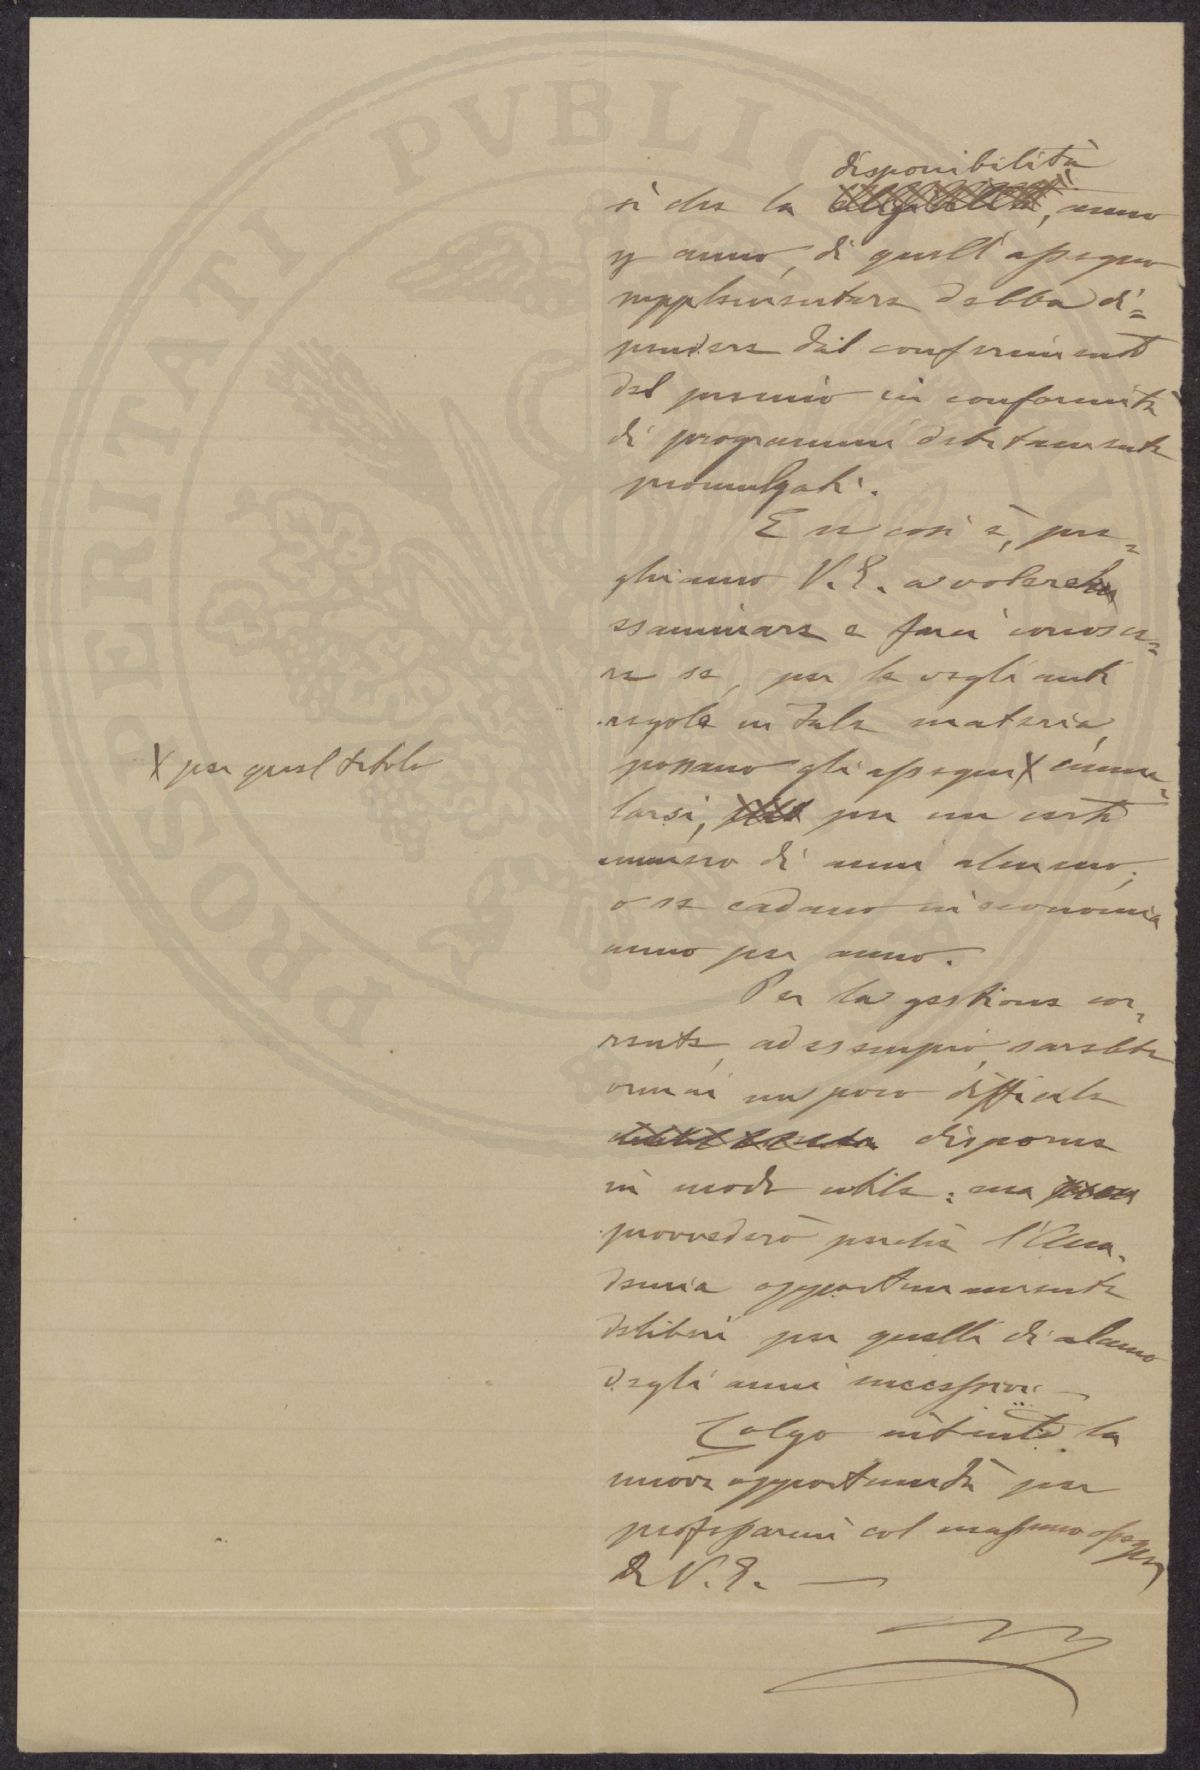 PROSPERITATI PVBLIC
disponibilità
è che la , anno
p anno, di quell'assegno
supplementare debba di=
pendere dal conferimento
del premio in conformità
di programmi debitamente
promulgati.
E se così è, pre=
ghiamo V. E. a volere
esaminare e farci conosce=
re se, per le veglianti
regole in tale materia,
possano gli assegni X cumu=
larsi, per un certo
numero di anni almeno;
o se cadano in economia
anno per anno.
X per quel titolo
Per la gestione cor=
rente, ad esempio, sarebbe
ormai un poco difficile
disporne
in modo utile: ma
provvederò perchè l'Acca=
demia opportunamente
deliberi per quelli di almeno
degli anni successivi.
Colgo intanto la
nuova opportunità per
professarmi col massimo ossequio
Di V. E.